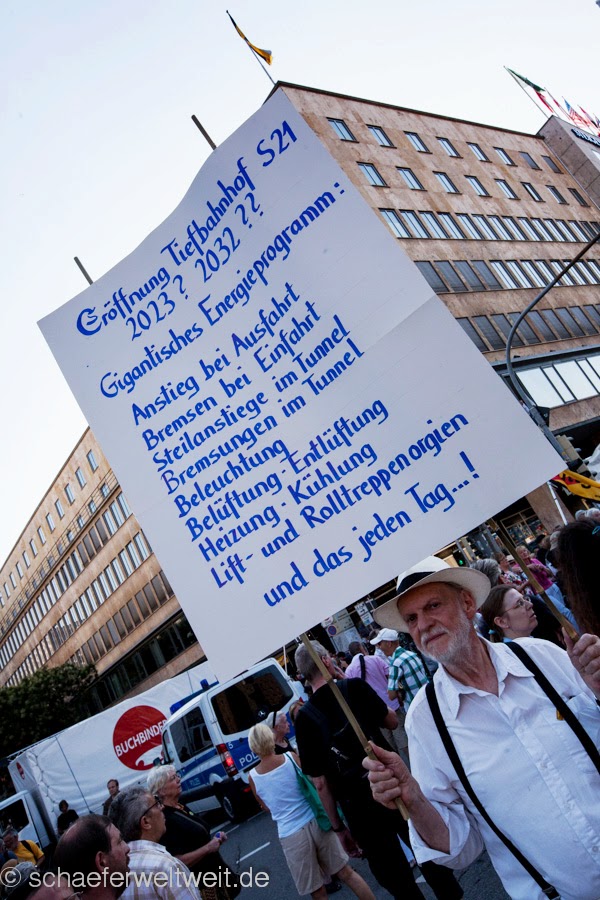 Eröffnung Tiefbahnhof S21
2023? 2032??
Gigantisches Energieprogramm:
Anstieg bei Ausfahrt
Bremsen bei Einfahrt
Steilanstiege im Tunnel
Bremsungen im Tunnel
Beleuchtung
Belüftung-Entlüftung
Heizung-Kühlung
Lift- und Rolltreppenorgien
und das jeden Tag...!
BUCHBINDER
© schaeferweltweit.de